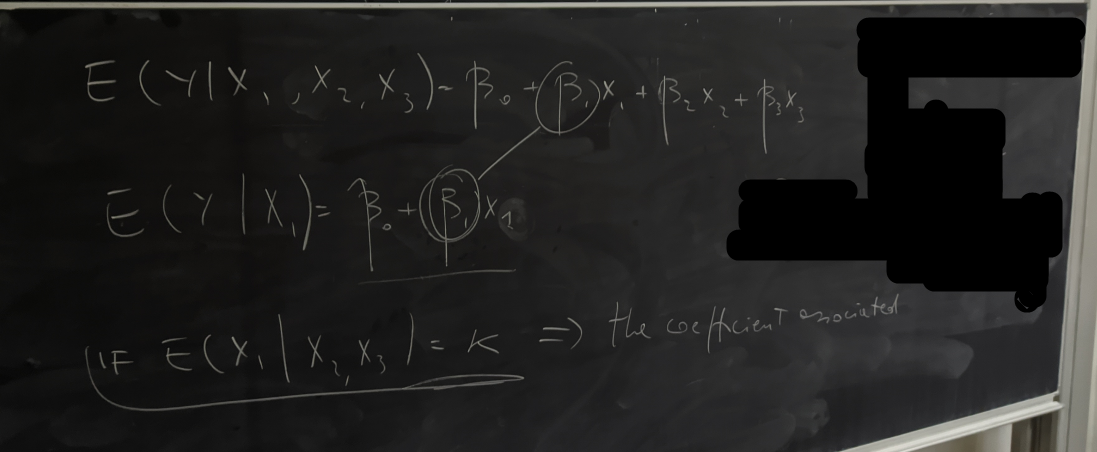 E(Y|X₁,X₂,X₃)=β₀+β₁X₁+β₂X₂+β₃X₃
E(Y|X₁)=β₀+β₁X₁
IF E(X₁|X₂,X₃)=K => the coefficient associated